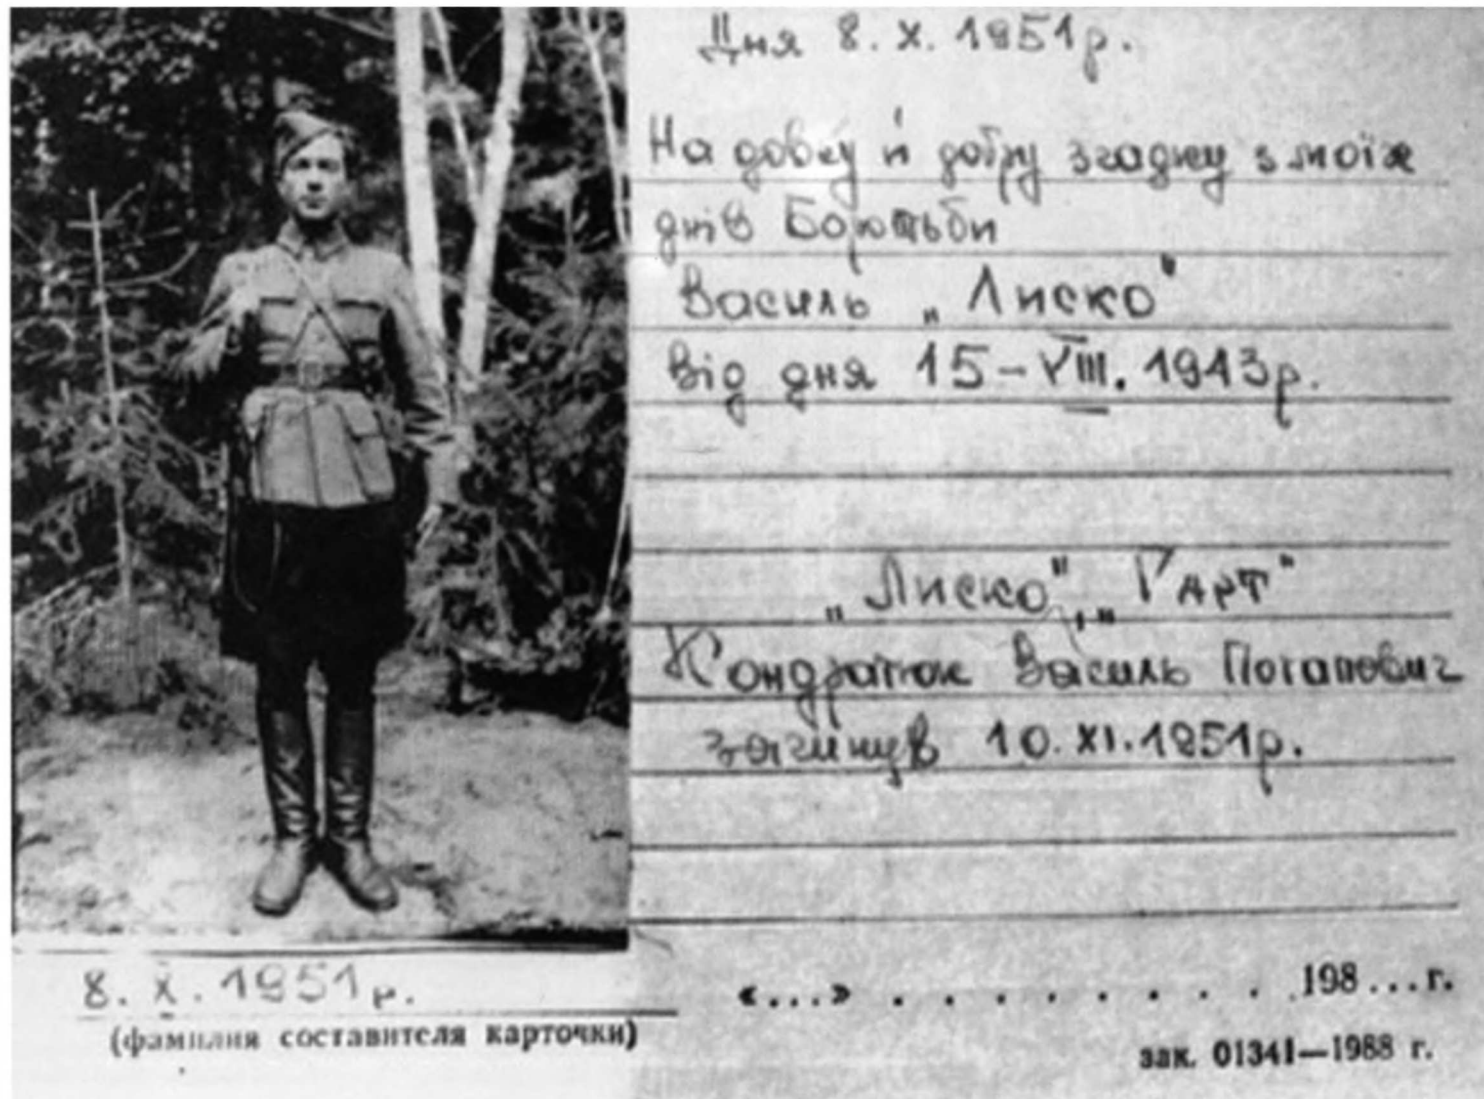 Дня 8. X. 1951р.
На довгу й добру згадку з моїх
днів Боротьби
Василь „Лиско"
Від дня 15-VIII. 1943р.
„Лиско", „Гарт"
Кондратюк Василь Потапович
загинув 10. XI. 1951р.
8. X. 1951р.
(фамилия составителя карточки)
«...» . . . . . . . . . . 198...г.
зак. 01341—1988 г.